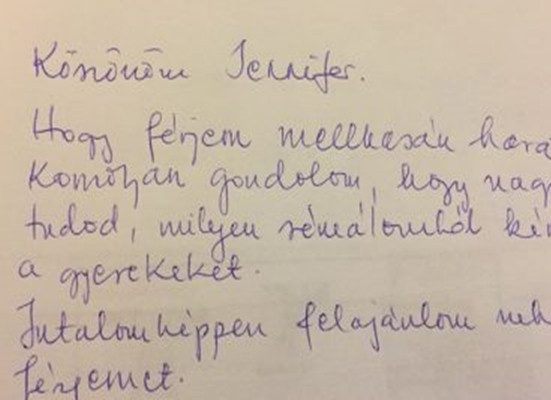 Köszönöm Jennifer.
Hogy férjem mellkasán hara
Komolyan gondolom, hogy nag
tudod, milyen rémálomból kí
a gyerekeket.
Jutalomképpen felajánlom nek
férjemet.